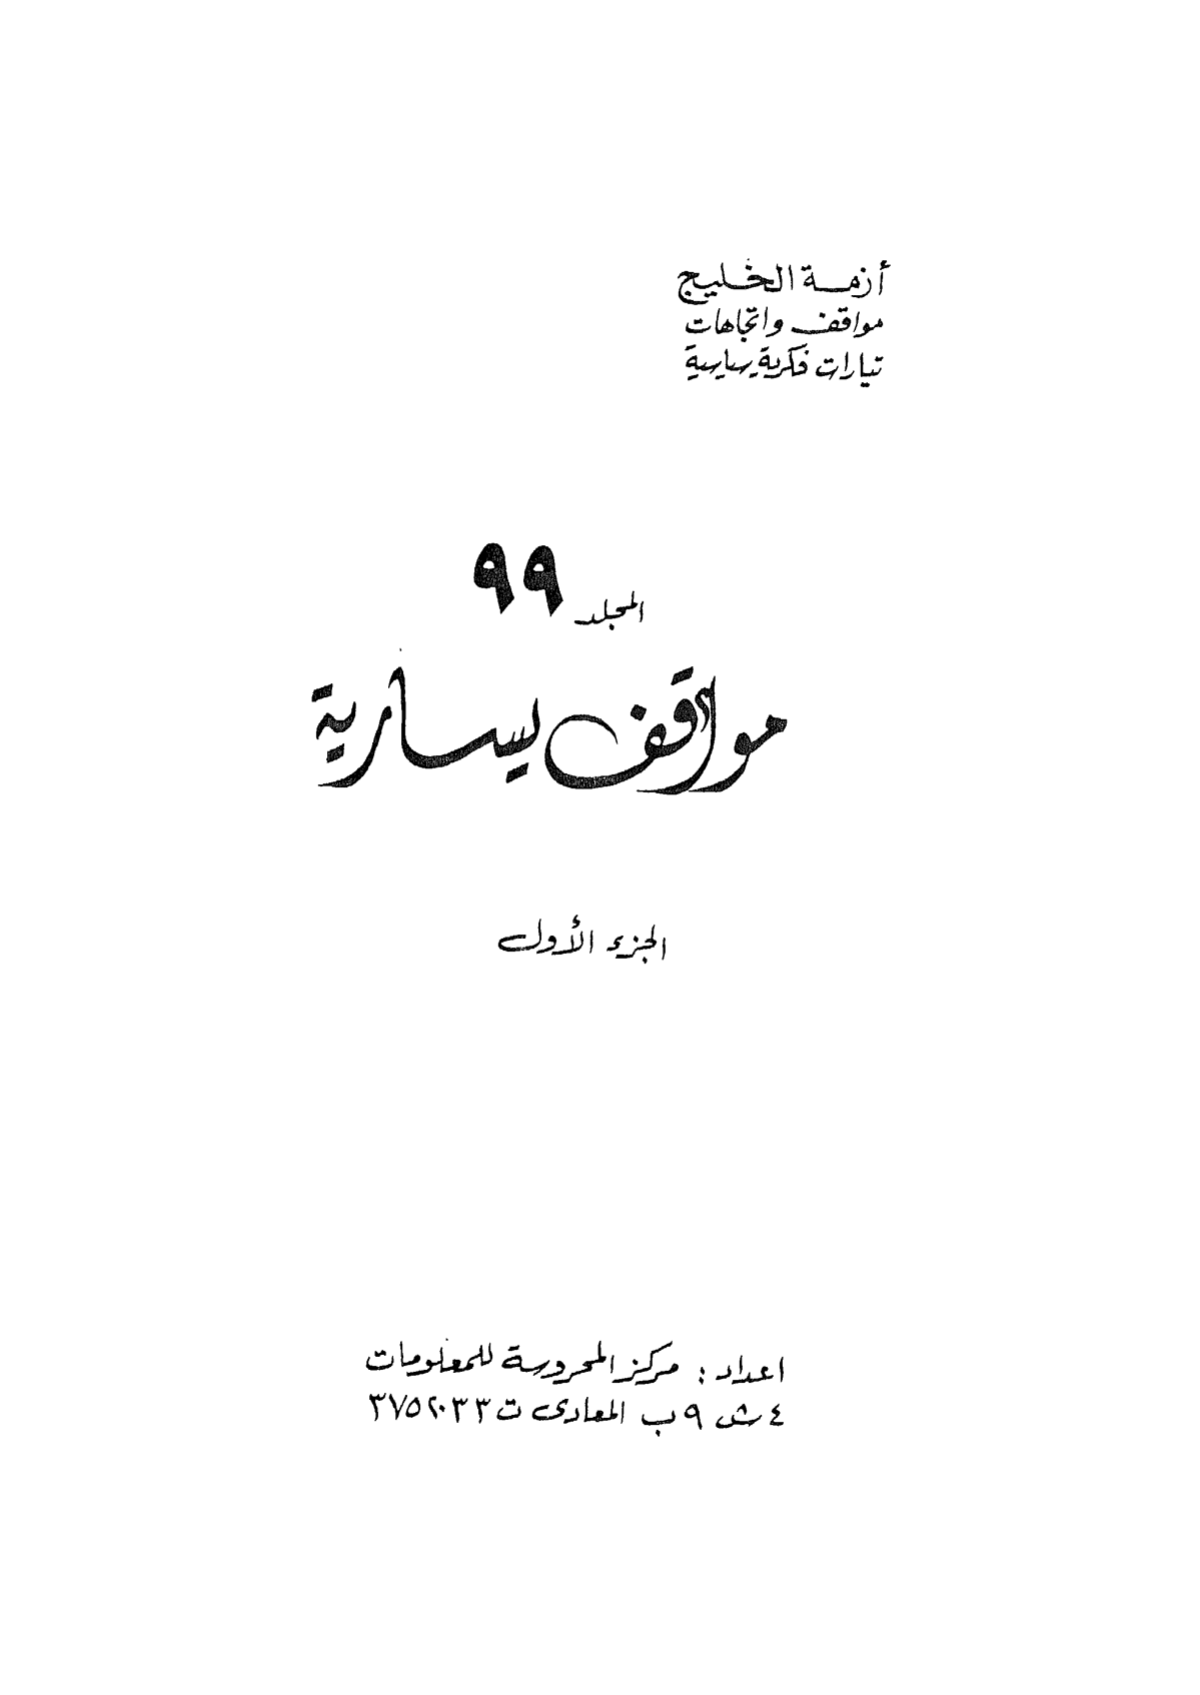 أزمة الخليج
مواقف واتجاهات
تيارات فكرية سياسية
المجلد ٩٩
مواقف يسارية
الجزء الأول
اعداد : مركز المحروسة للمعلومات
٤ ش ٩ ب المعادى ت ٣٧٥٢٠٣٣